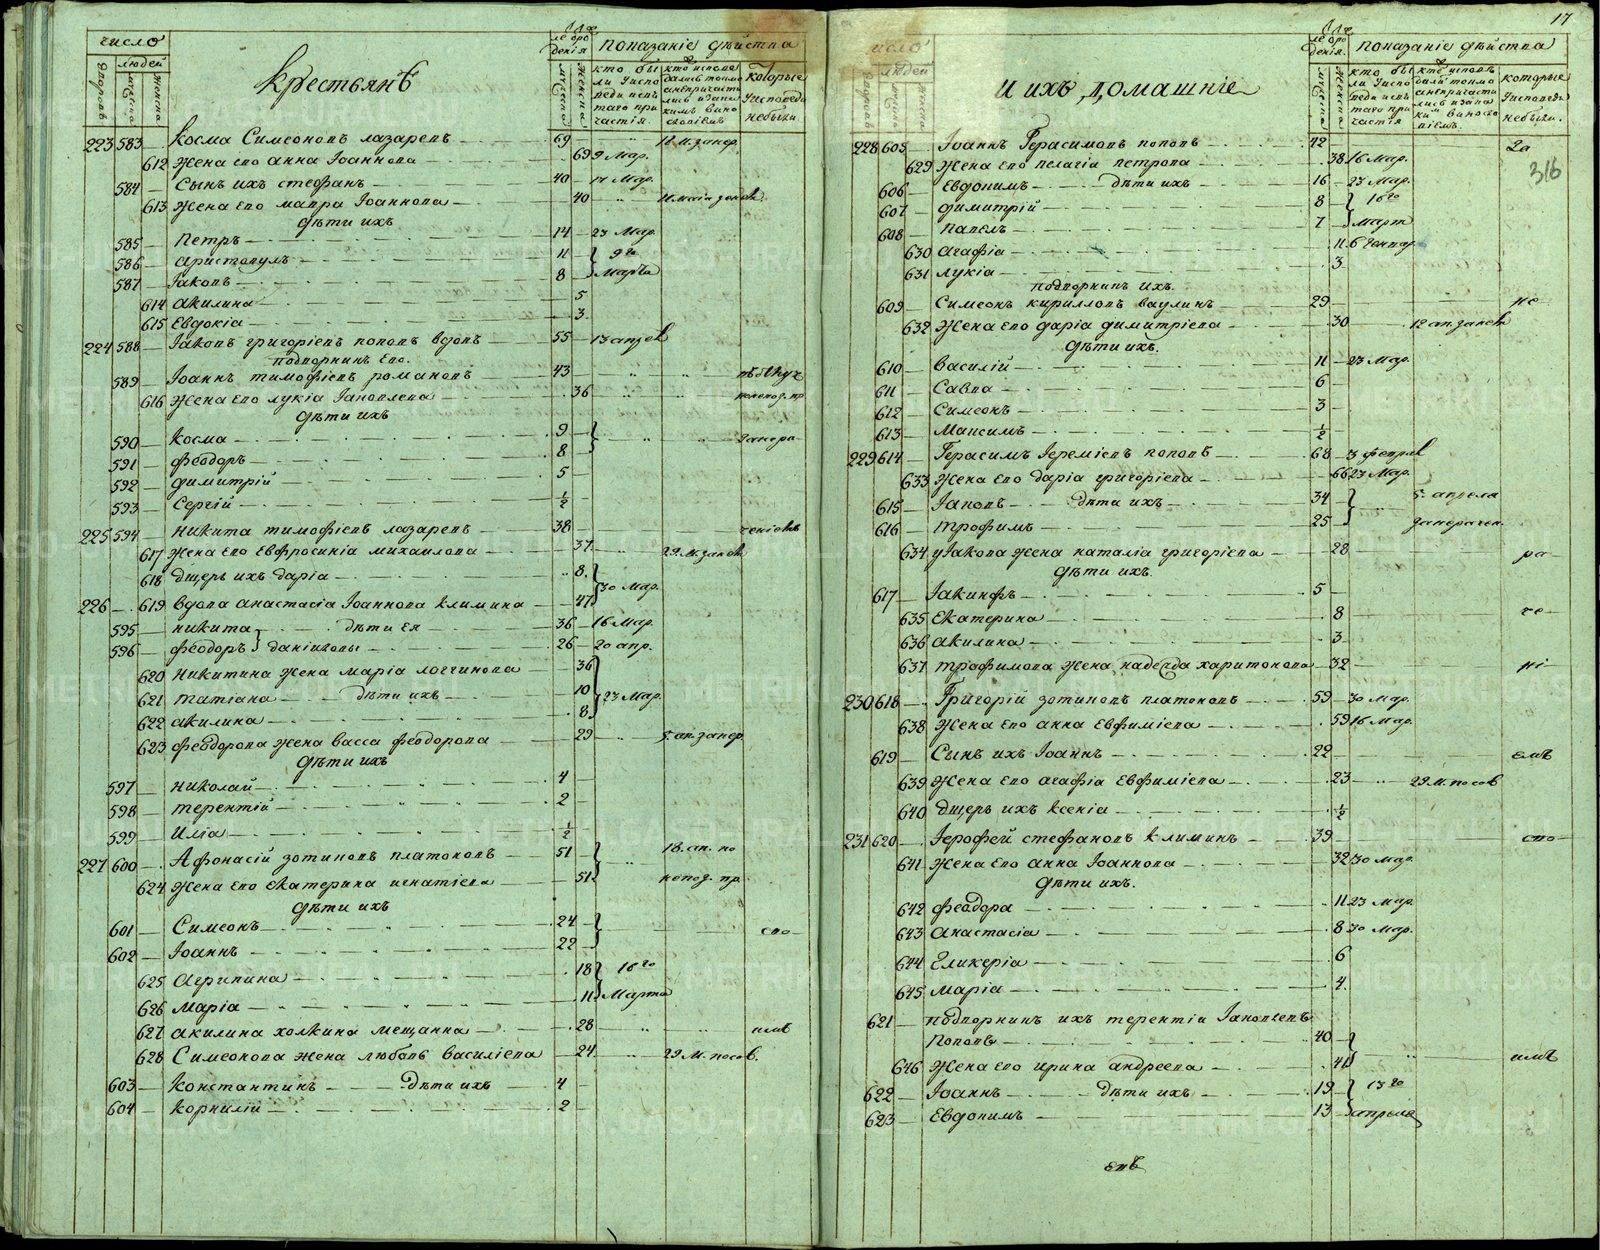 число
людей
мужеска
женска
крестьянѣ
показаніе дѣйства
кто бы
ли у испо
вѣди и свя
таго при
частія.
которые
у исповеди
небыли.
223 583 — Косма Симеоновъ лазаревъ — 69
612 жена его анна Іоаннова 69 9 Мар.
584 — Сынъ ихъ стефанъ — 40 — 17 Мар.
613 жена его мавра Іоаннова — 40
дѣти ихъ
585 — Петръ — 14 — 23 Мар.
586 — аристовулъ — 11 — } 9го
587 — Іаковъ — 8 — Марта
614 акилина — 5
615 Евдокіа — 3
224 588 — Іаковъ григоріевъ поповъ вдовъ — 55 — 13 апрел
подворникъ его.
589 — Іоаннъ тимофіевъ романовъ 43
616 жена его лукіа Іаковлева — 36
дѣти ихъ
590 — Косма — 9
591 — феодоръ — 8
592 — димитрій — 5
593 — Сергій — ½
225 594 — никита тимофіевъ лазаревъ — 38
617 жена его Евфросиніа михаилова — 37
618 дщерь ихъ даріа — 8. } 30 Мар.
226 — 619 вдова анастасіа Іоаннова климина — 47
595 — никита } дѣти ея — 36 — 16 Мар.
596 — феодоръ } даніиловы — 26 — 20 апр.
620 никитина жена маріа логгинова — 36
621 татіана — дѣти ихъ — 10 } 23 Мар.
622 акилина — 8
623 феодорова жена васса феодорова — 29
дѣти ихъ
597 — николай — 4
598 — терентій — 2
599 — иліа — ½
227 600 — Афонасій зотиковъ платоновъ — 51
624 жена его екатерина игнатіева — 51
дѣти ихъ
601 — Симеонъ — 24
602 — Іоаннъ — 22
625 агрипина — 18 } 16го
626 маріа — 11 } Марта
627 акилина 28
628 Симеонова жена любовь василіева — 24
603 — константинъ — дѣти ихъ 4
604 — корнилій — 2
17
316
число
людей
и ихъ домашніе
показаніе дѣйства
кто бы
ли у испо
вѣди и свя
таго при
частія
которые
у исповеди
небыли.
228 605 — Іоаннъ Герасимовъ поповъ — 42
629 жена его пелагіа петрова — 38 16 Мар.
606 — Евдокимъ — дѣти ихъ — 16 — 23 Мар.
607 — димитрій — 8 — } 16го
608 — павелъ — 7 } Март
630 агафіа — 11
631 лукіа — 3
подворникъ ихъ.
609 — Симеонъ кирилловъ ваулинъ — 29 — не
632 жена его даріа димитріева — 30
дѣти ихъ.
610 — василій — 11 — 23 Мар.
611 — Савва — 6
612 — Симеонъ — 3
613 — Максимъ — ½
229 614 — Герасимъ Іереміевъ поповъ — 68
633 жена его даріа григоріева — 66 23 Мар.
615 — Іаковъ — дѣти ихъ — 34 } 5. апреля
616 — трофимъ — 25
634 у Іакова жена наталіа григоріева — 28
дѣти ихъ.
617 — Іакинфъ — 5
635 Екатерина — 8
636 акилина — 3
637 трафимова жена надежда харитонова — 32
230 618 — Григорій зотиковъ платоновъ — 59 — 30 Мар.
638 жена его анна Евфиміева — 59 16 Мар.
619 — Сынъ ихъ Іоаннъ — 22
639 жена его агафіа Евфиміева — 23
640 дщерь ихъ ксеніа — ½
231 620 — Іерофей стефановъ климинъ — 39
641 жена его анна Іоаннова — 32 30 Мар.
дѣти ихъ.
642 феодора — 11 23 Мар.
643 анастасіа — 8 30 Мар.
644 Гликеріа — 6
645 маріа — 4
621 — подворникъ ихъ терентій Іаковлевъ
поповъ — 40
646 жена его ирина андреева — 41
622 — Іоаннъ — дѣти ихъ — 19 } 13го
623 — Евдокимъ — 13 } апреля